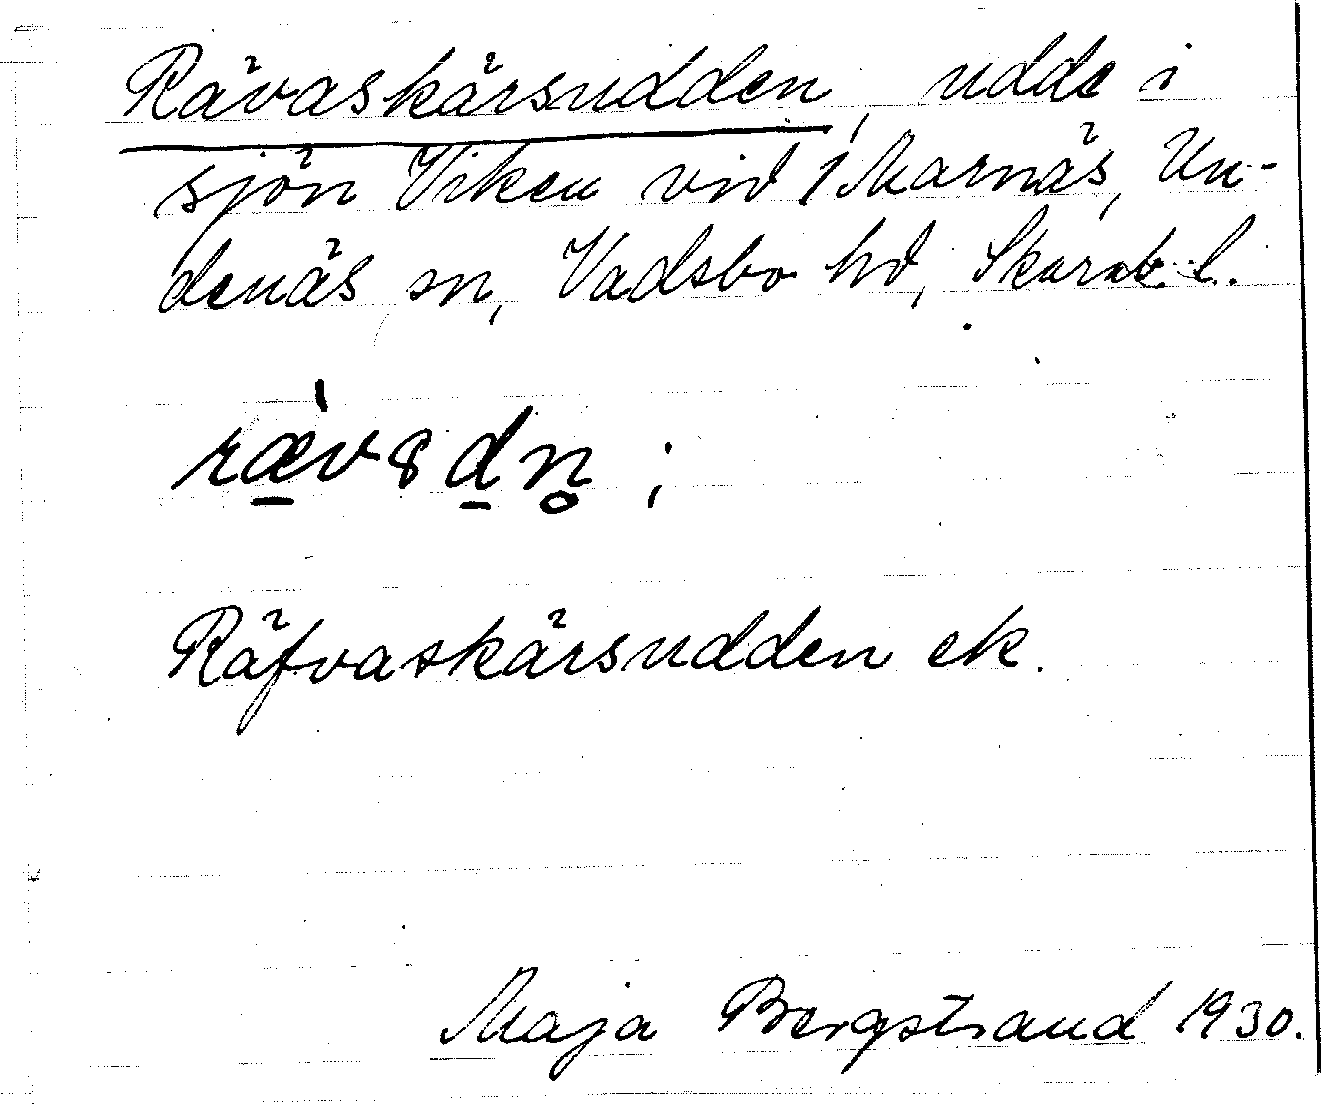 Rävaskärsudden, udde i
sjön Viken vid 1 Marnäs, Un-
denäs sn, Vadsbo hd, Skarab. l.
ræ̠̀v8d̠n̥ ;
Räfvaskärsudden ek.
Maja Bergstrand 1930.